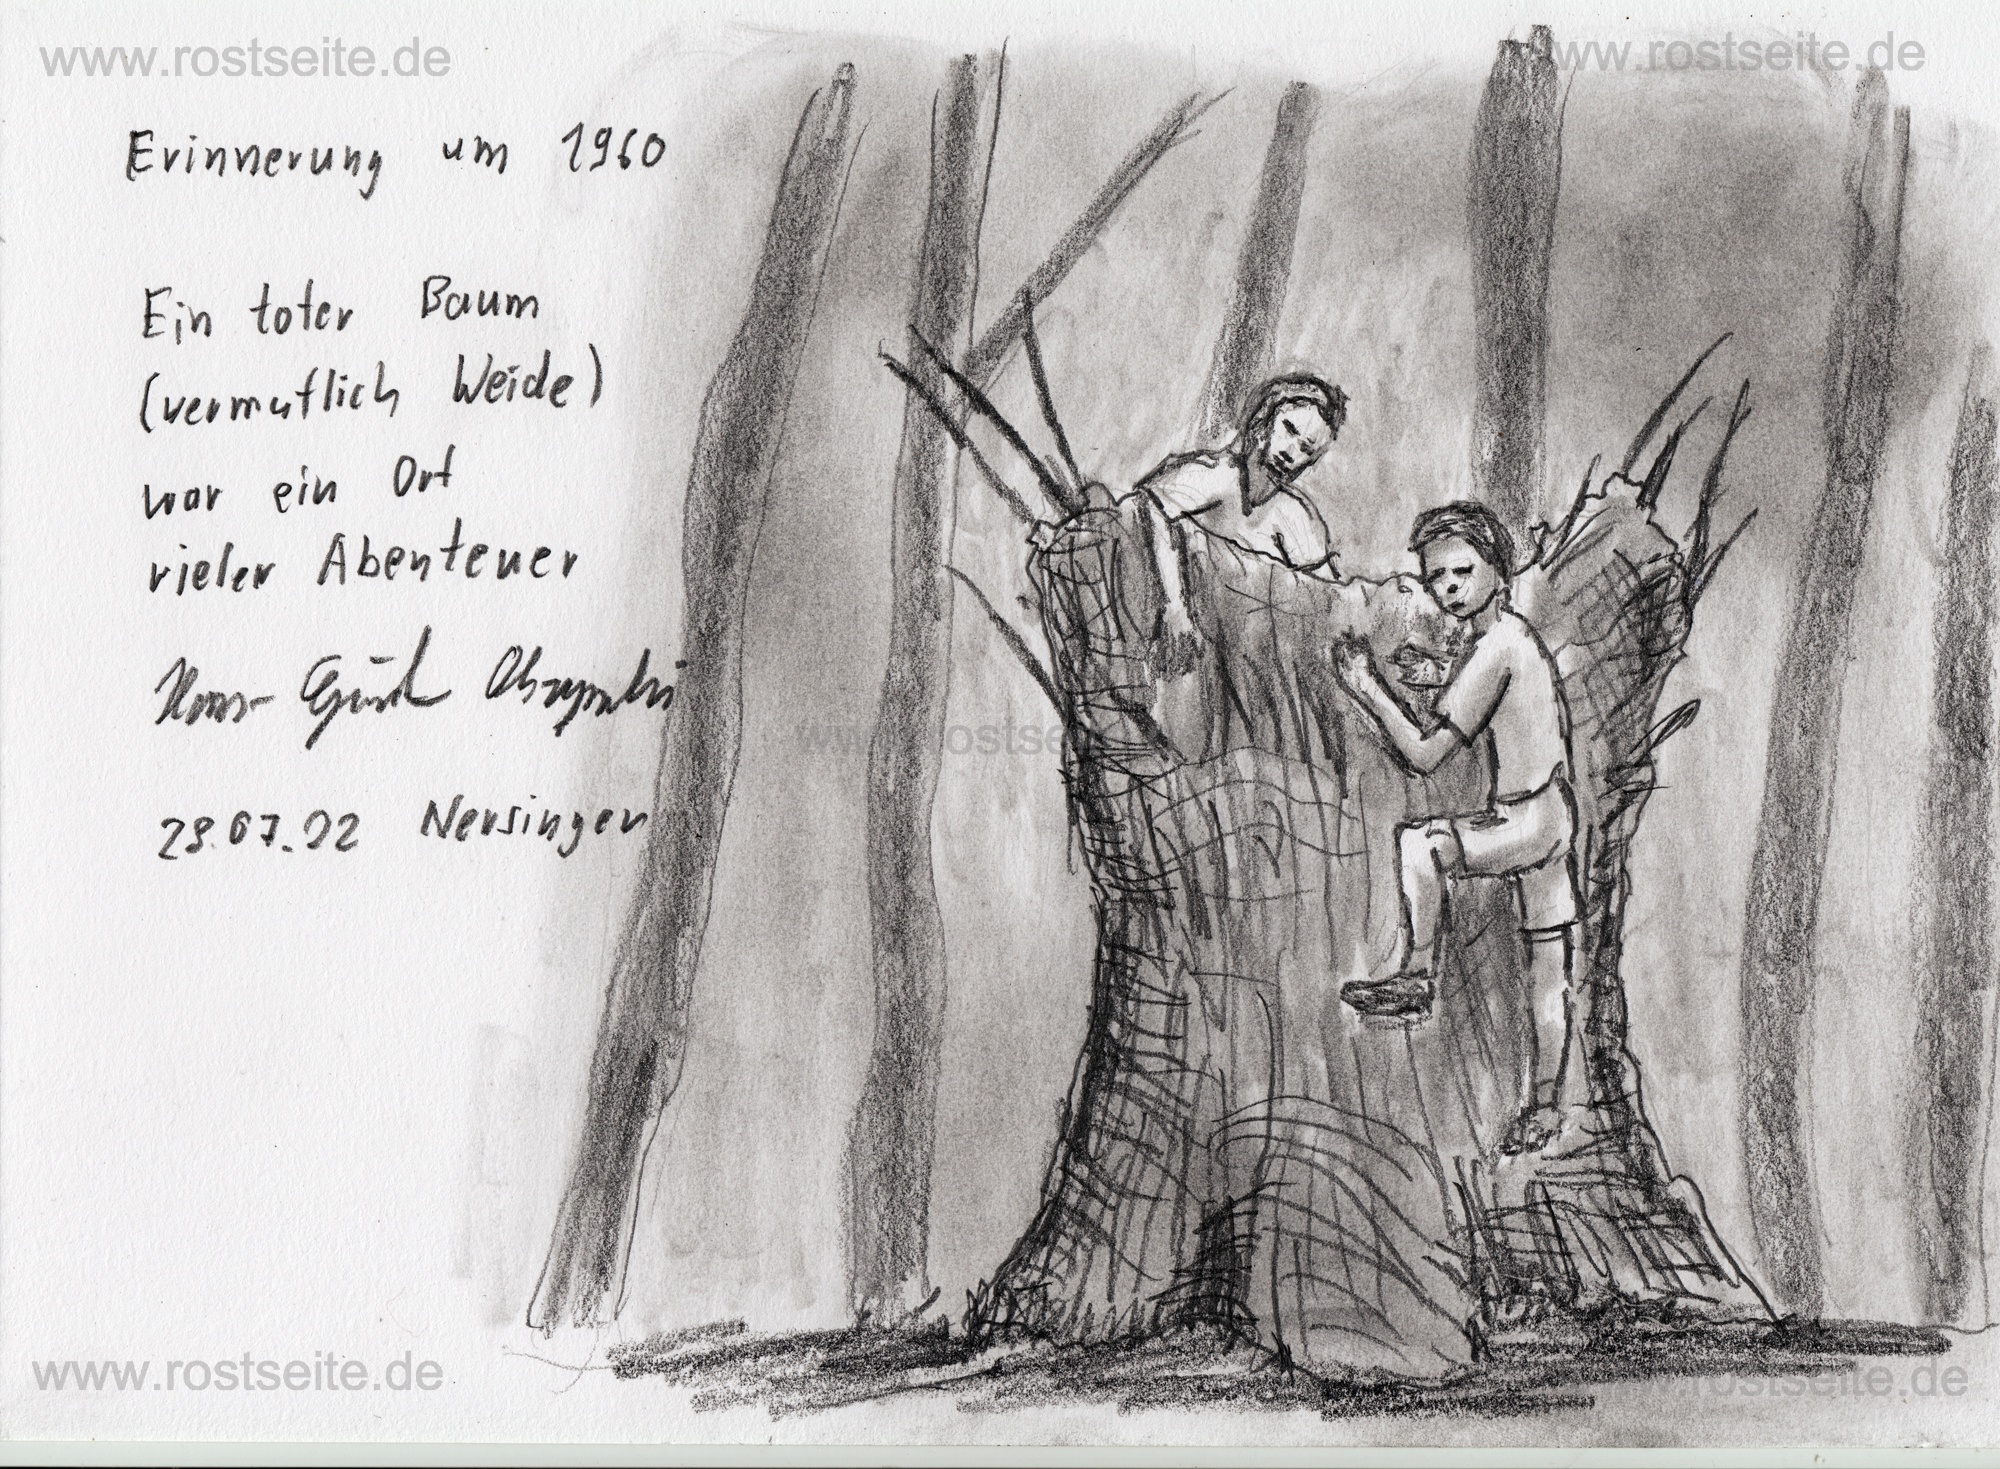 www.rostseite.de
www.rostseite.de
Erinnerung um 1960
Ein toter Baum
(vermutlich Weide)
war ein Ort
vieler Abenteuer
Hans-
www.rostseite.de
Nersingen
www.rostseite.de
www.rostseite.de